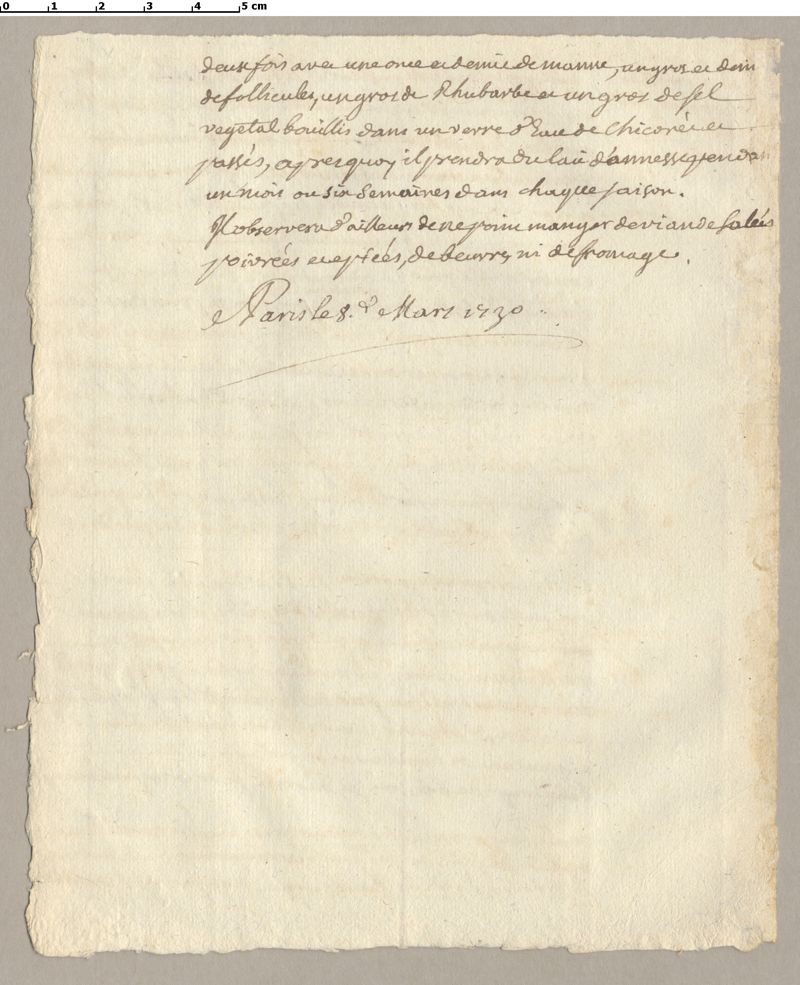 0 1 2 3 4 5 cm
deux fois avec une once et demie de manne, un gros et demi
de follicules, un gros de Rhubarbe et un gros de sel
vegetal bouillis dans un verre d'Eau de Chicorée et
passés, apres quoy il prendra du lait d'annesse pendan
un mois ou six Semaines dans chaque saison.
Il observera d'ailleurs de ne point manger de viande salées
poivrées et epicées, de beurre, ni de fromage.
A Paris le 8.e Mars 1730